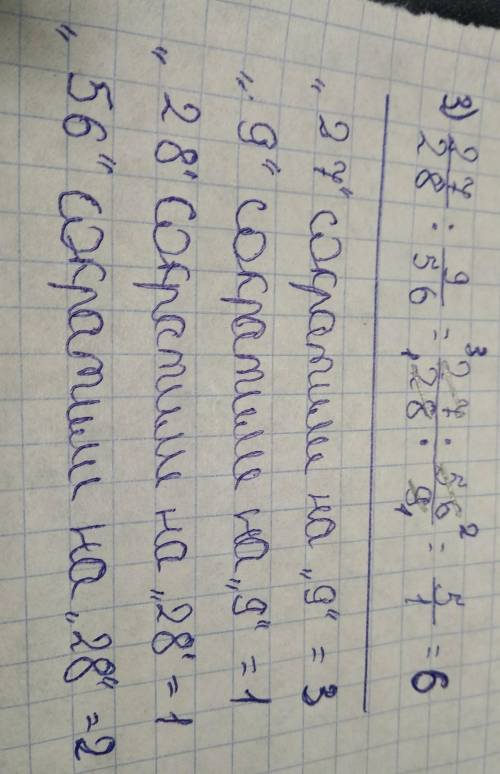 3) 27/28 : 9/56 = ³27 · 56²/₁28 · 9₁ = 5/1 = 6
„27“ сократили на „9“ = 3
„9“ сократили на „9“ = 1
„28“ сократили на „28“ = 1
„56“ сократили на „28“ = 2